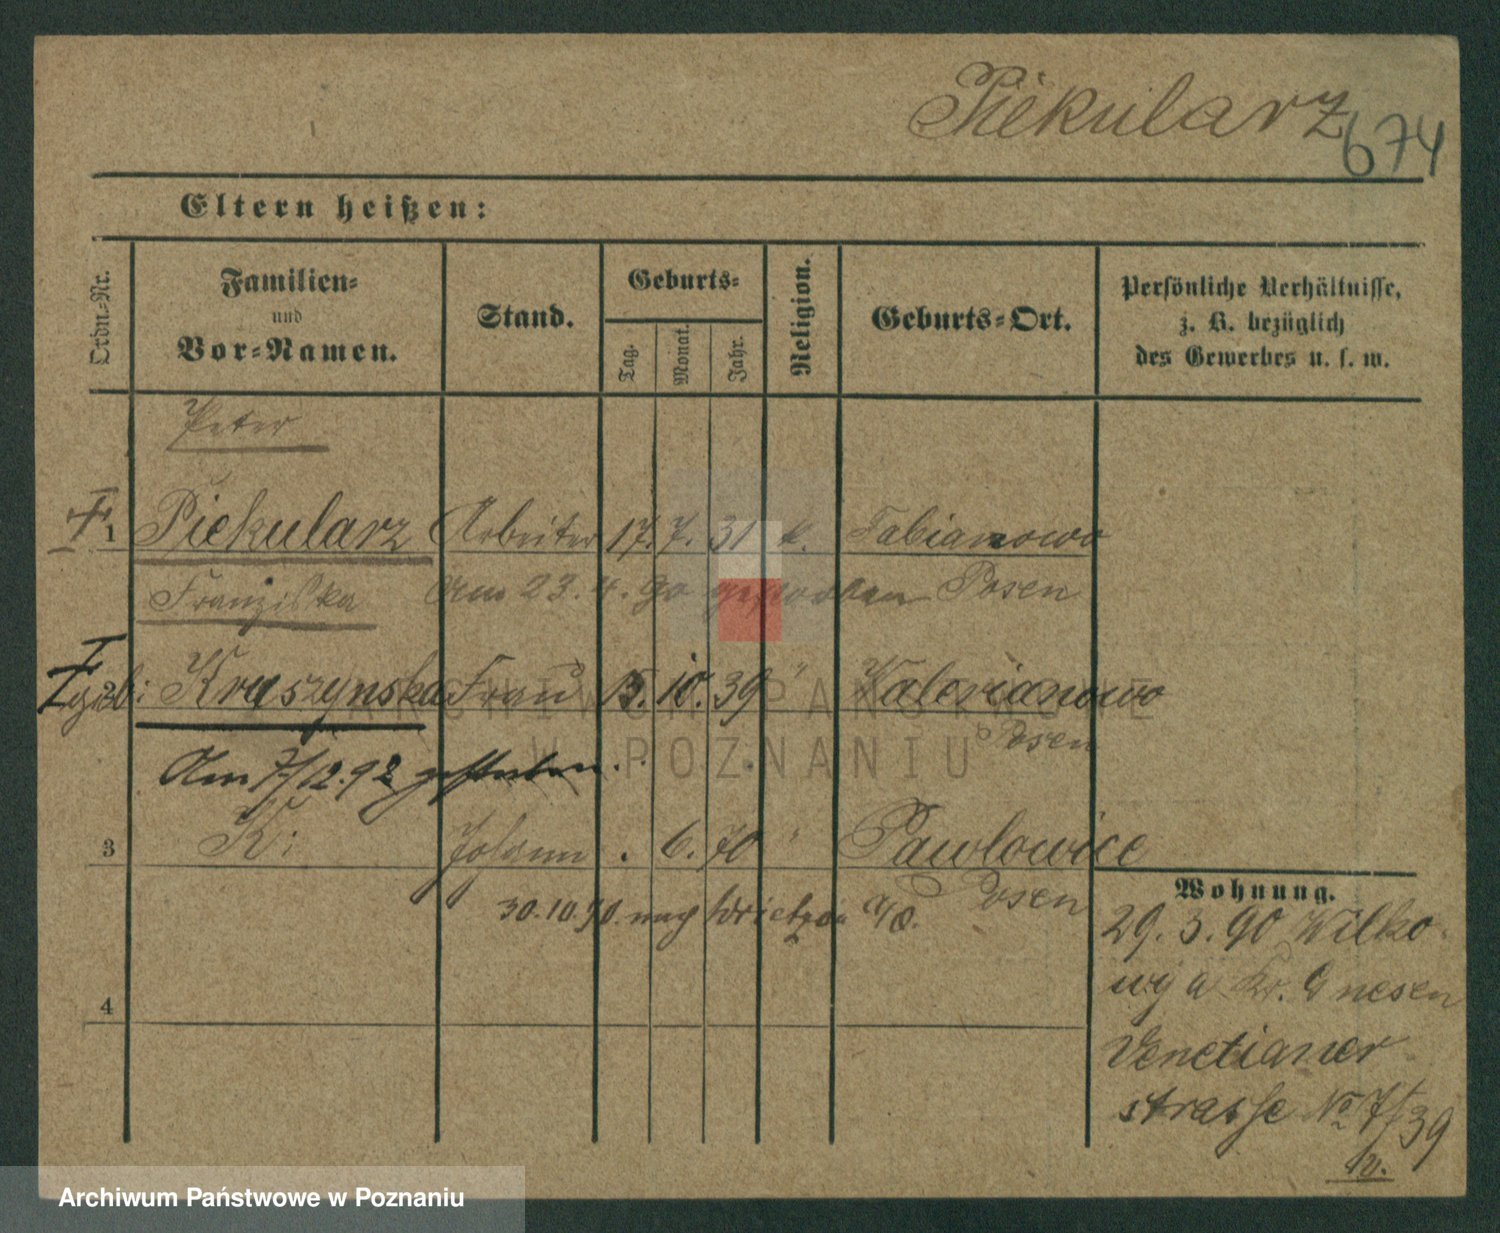 Piekularz
674
Eltern heißen:
Ordn.-Nr.
Familien-
und
Vor-Namen.
Stand.
Geburts-
Tag.
Monat.
Jahr.
Religion.
Geburts-Ort.
Persönliche Verhältnisse,
z. B. bezüglich
des Gewerbes u. s. w.
Peter
1 Piekularz Arbeiter 17. 7. 31 k. Fabianowo
Franziska Am 23. 4. 90 gestorben Posen
2 geb: Kruszynska Frau 15. 10. 39 " Walerianowo
Posen
Am 7/12. 92 gestorben.
3 K: Johann . 6. 70 " Pawlowice
Posen
30.10.90. nach Wriezen a/O.
4
Wohnung.
29. 3. 90 Wilko-
wyja Kr. Gnesen
Venetianer
strasse No 7/39
ARCHIWUM PAŃSTWOWE
W POZNANIU
Archiwum Państwowe w Poznaniu